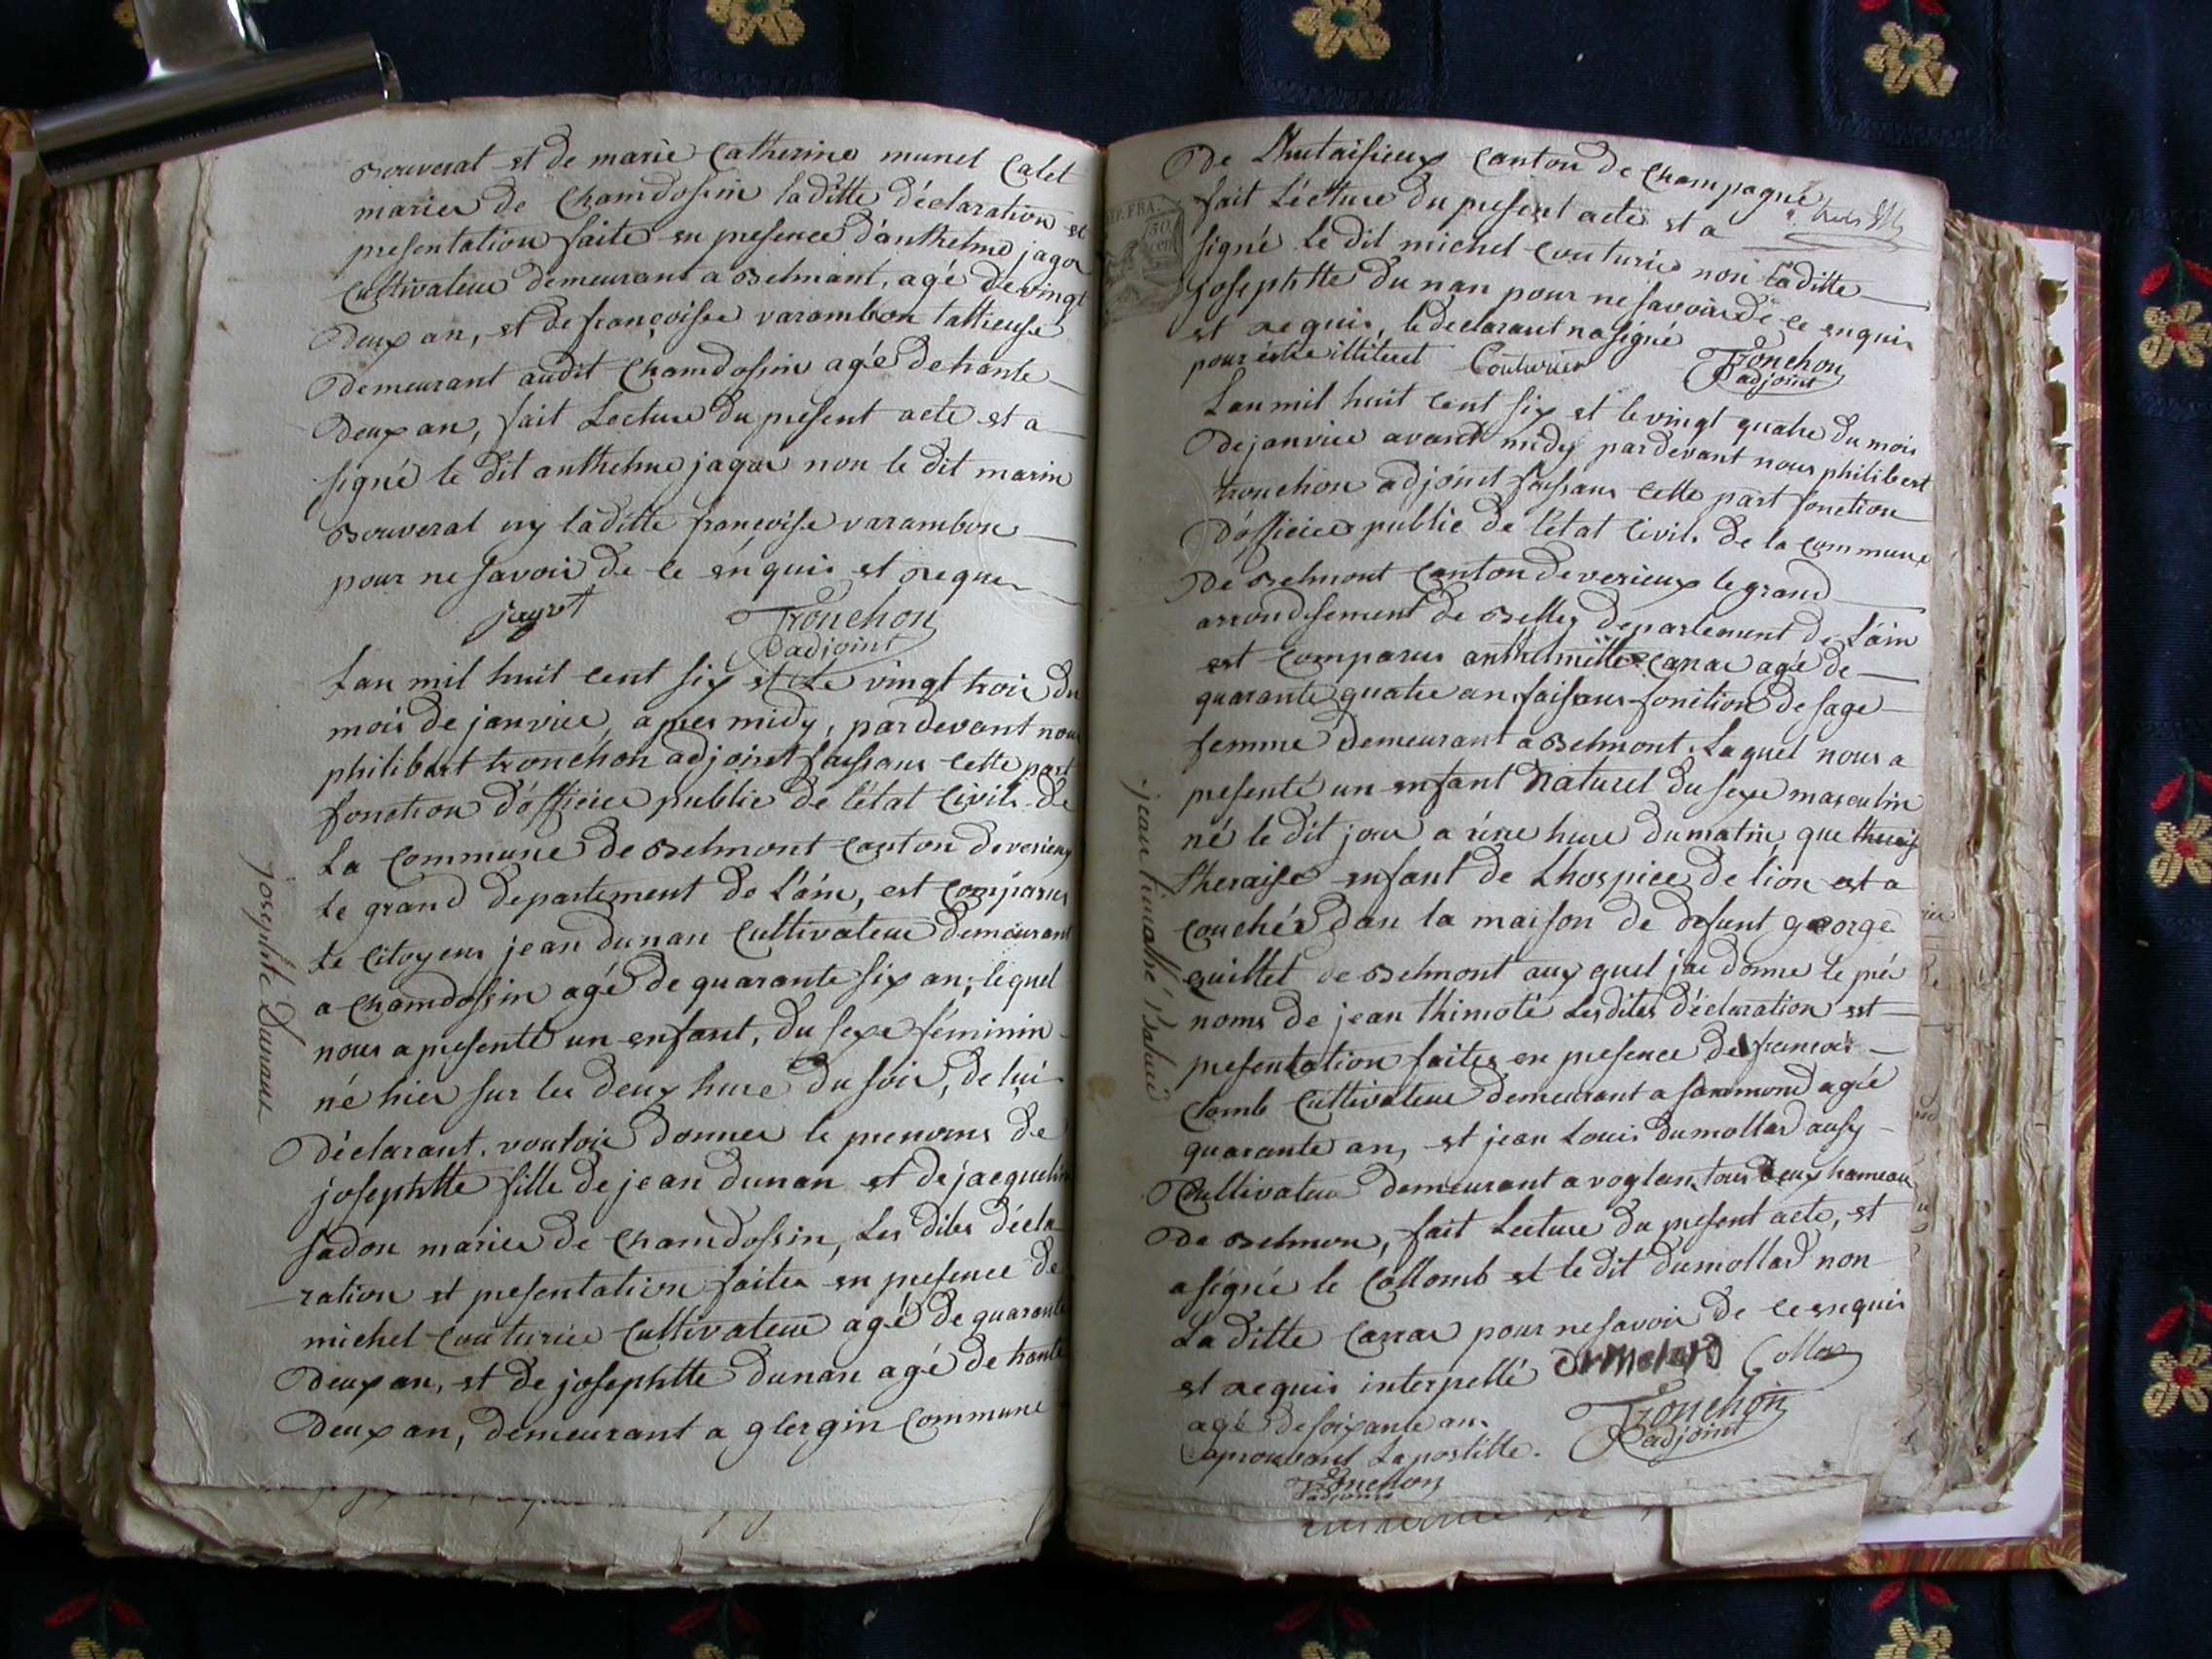 Bouverat et de marie Catherine munet Calet
mariés de Chamdossin laditte déclaration et
presentation faite en presence d'anthelme jagot
Cultivateur demeurant a Belmant, agé de vingt
deux an, et de françoise varambon tallieuse
demeurant audit Chamdossin agé de trante
deux an, fait Lecture du present acte et a
signé le dit anthelme jagot non le dit marin
Bouverat ny laditte françoise varambon
pour ne savoir de ce énquis et requis
jagot Tronchon
adjoint
Lan mil huit cent six et le vingt trois du
mois de janvier, apres midy, pardevant nous
philibert tronchon adjoint faissans cette part
fonction d'officier public de l'état civil de
La Commune de Belmont canton de verieux
le grand departement de L'ain, est comparus
le Citoyens jean dunan Cultivateur demeurant
a Chamdossin agé de quarante six an; lequel
nous a presenté un enfant, du sexe féminin
né hier sur les deux hure du soir, de lui
déclarant, vouloir donner le prenoms de
josephtte fille de jean dunan et de jacqueline
sadon mariés de Chamdossin, Les dites décla
ration et presentation faites en presence de
michel couturier Cultivateur agé de quarante
deux an, et de josephtte dunan agé de trante
deux an, demeurant a glergin commune
josephte Dunant
De Chutaisieux Canton de Champagne
fait Lécture du present acte et a
signé le dit michel couturier non laditte
josephtte du nan pour ne savoir de ce enquis
et requis, le declarant na signé
pour éstre illiteret Couturier Tronchon
adjoint
IMP. FRA.
50
cen
Lan mil huit cent six et le vingt quatre du mois
de janvier avant midy pardevant nous philibert
tronchon adjoint faissans cette part fonction
d'officier public de l'état civil de la commune
de Belmont Canton de verieux le grand
arrondisement de Belley departement de L'ain
est comparus anthelmette carrar agé de
quarante quatre an, faisans fonction de sage
femme demeurant a Belmont, Laquel nous a
presenté un enfant naturel du sexe masculin
né le dit jour a une hure du matin, que
theraise enfant de Lhospice de lion est a
couchér dan la maison de defunt george
guillet de Belmont aux quel j'ai donne le pré
noms de jean thimoté Lesdites déclaration et
presentation faites en presence de francois
Comb Cultivateur demeurant a sammond agée
quarante an, et jean Louis dumollard ausy
Cultivateur demeurant a voglans tous deux hameau
de Belmon, fait Lecture du present acte, et
a signé le Collomb et le dit dumollard non
La ditte Carrar pour ne savoir de ce enquis
et requis interpellé Collon
agé de soixante an Tronchon
aprouvant La postille. adjoint
Tronchon
adjoint
jean timothé